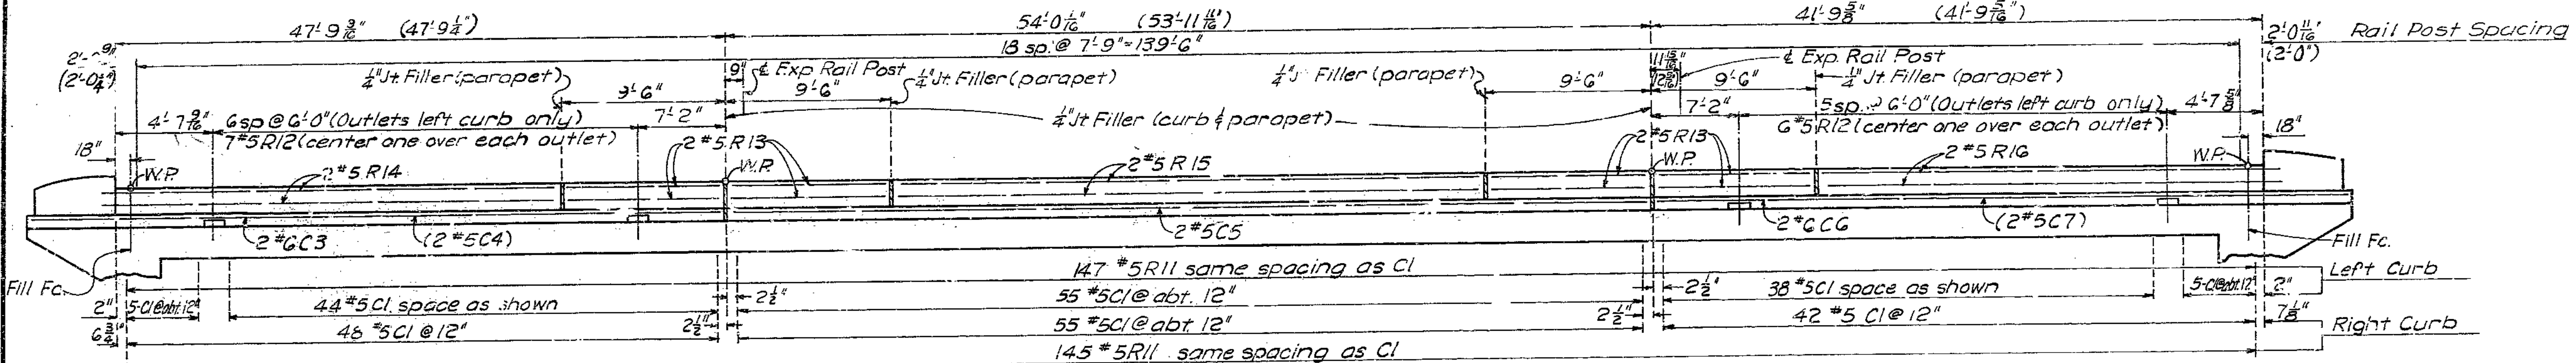 47'-9 3/16" (47'-9 1/4")
54'-0 1/16" (53'-11 11/16")
41'-9 5/8" (41'-9 5/16")
18 sp. @ 7'-9"=139'-6"
2'-0 11/16" Rail Post Spacing
(2'-0")
(2'-0 1/4")
1/4" Jt. Filler (parapet)
9"
℄ Exp. Rail Post
1/4" Jt. Filler (parapet)
1/4" J Filler (parapet)
11 15/16"
℄ Exp. Rail Post
1/4" Jt. Filler (parapet)
9'-6"
9'-6"
9'-6"
9'-6"
4'-7 9/16"
6 sp @ 6'-0" (Outlets left curb only)
7'-2"
7 #5 R12 (center one over each outlet)
1/4" Jt Filler (curb & parapet)
7'-2"
5 sp. @ 6'-0" (Outlets left curb only)
4'-7 5/8"
6 #5 R12 (center one over each outlet)
18"
2 #5 R13
2 #5 R13
18"
W.P.
2 #5 R14
W.P.
2 #5 R15
W.P.
2 #5 R16
W.P.
2 #6 C3
(2 #5 C4)
2 #5 C5
2 #6 C6
(2 #5 C7)
Fill Fc.
Fill Fc.
147 #5 R11 same spacing as C1
Left Curb
2"
5-C1@abt. 12"
44 #5 C1 space as shown
2 1/2"
55 #5 C1 @ abt. 12"
2 1/2"
38 #5 C1 space as shown
5-C1@abt 12"
2"
6 3/4"
48 #5 C1 @ 12"
2 1/2"
55 #5 C1 @ abt. 12"
2 1/2"
42 #5 C1 @ 12"
7 1/8"
Right Curb
145 #5 R11 same spacing as C1